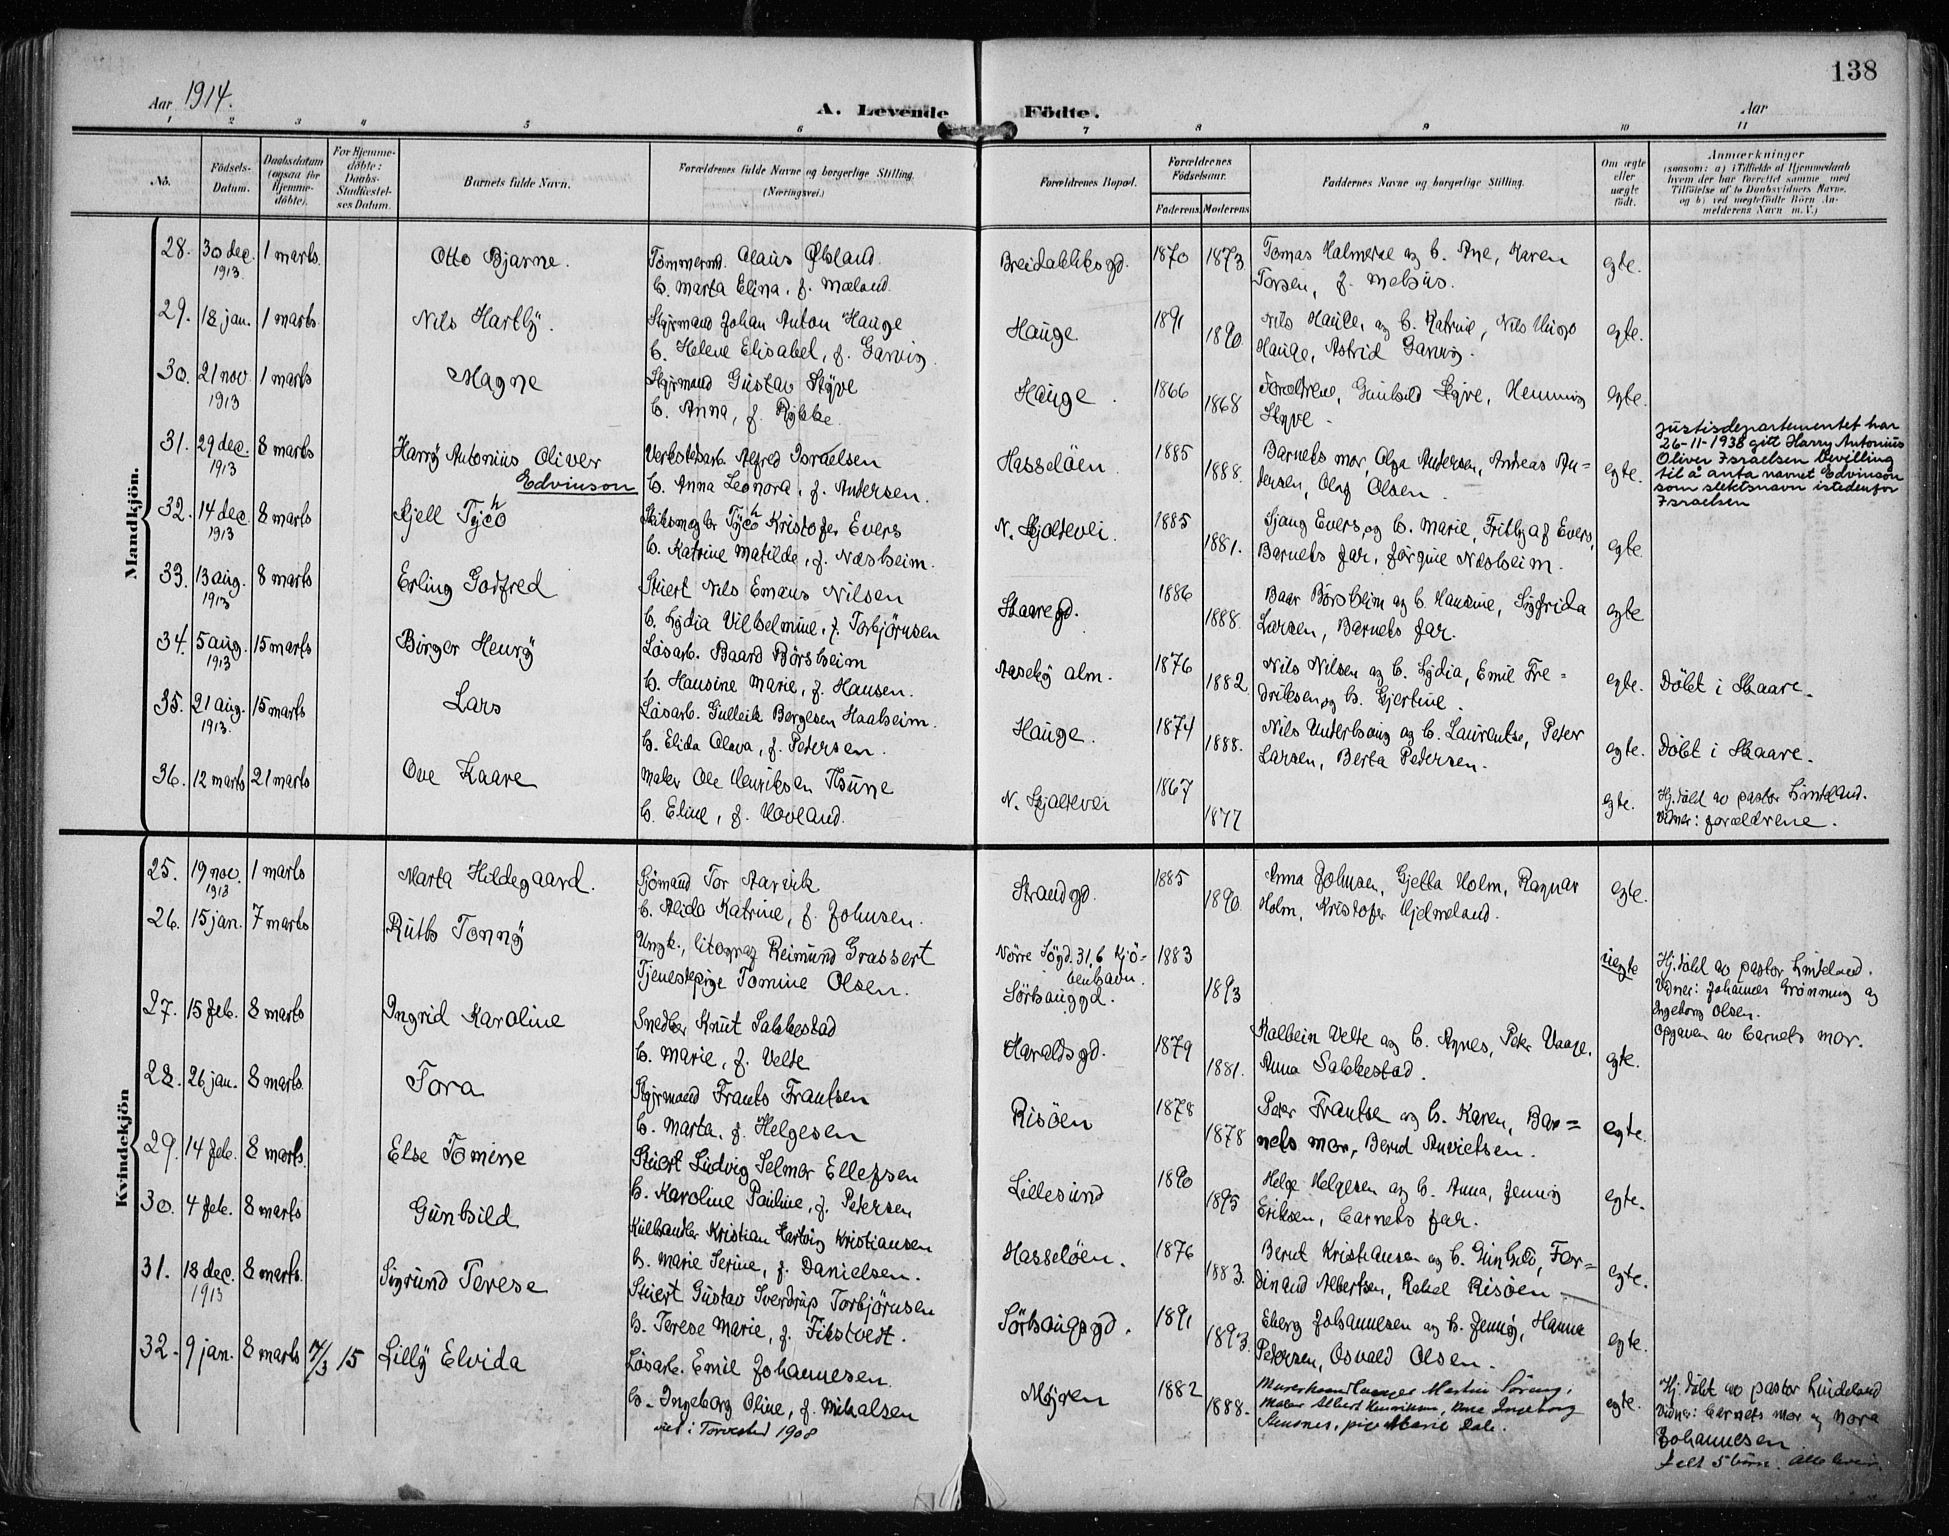 138
Aar 1914.
A. Levende Födte.
Aar
1 2 3 4 5 6 7 8 9 10 11
No.
Födsels-Datum.
Daabsdatum (ogsaa for Hjemme-döbte).
For Hjemme-döbte: Daabs-Stadfæstel-ses Datum.
Barnets fulde Navn.
Forældrenes fulde Navne og borgerlige Stilling. (Næringsvei.)
Forældrenes Bopæl.
Forældrenes Födselsaar.
Faderens Moderens
Faddernes Navne og borgerlige Stilling.
Om ægte eller uægte født.
Anmærkninger
(saasom: a) i Tilfælde af Hjemmedaab
hvem der har forrettet samme med
Tilföielse af to Daabsvidners Navne.
og b) ved uegtefödte Börn An-
melderens Navn m. V.)
Mandkjön.
28. 30 dec. 1913 1 marts. Otto Bjarne. Tømmermd. Olaus
H. Marta Elina, f. Mæland. Breidabliksgd. 1870 1873 Tomas Halmerse og H. Ane, Karen
Torsen, f. egte.
29. 18 jan. 1 marts Nils Hartly. Styrmand Johan Anton Hauge
H. Helene Elisabet, f. Hauge 1891 1890. Nils Hauge, og H. Katrine, Nils Hugo
Hauge, Astrid egte.
30. 21 nov 1913 1 marts Magne Styrmand Gustav Styve
H. Anna, f. Rykke. Hauge. 1866 1868 Forældrene, Gunhild Styve, Henning
Styve. egte.
31. 29 dec. 1913 8 marts Harry Antonius Oliver
Edvinson Verkstedarb. Alfred Israelsen
H. Anna Leonora, f. Andersen. Hasseløen. 1885 1888. Barnets mor, Olga Andersen, Andreas An=
dersen, Olaf Olsen. egte. Justisdepartementet har
26-11-1938 gitt Harry Antonius
Oliver Israelsen bevilling
til å anta navnet Edvinson
som slektsnavn istedenfor
Israelsen
32. 14 dec. 1913 8 marts Kjell Tycho Tycho Kristofer Evers
H. Katrine Matilde, f. Næsheim. N. Skjoldevei. 1885 1881. Sjang Evers, og H. Marie, Frithjaf Evers,
Barnets far, Jørgine Næsheim. egte
33. 13 aug. 1913 8 marts Erling Godfred Stuert Nils Emaus Nilsen
H. Lydia Vilhelmine, f. Torbjørnsen Skaaregd. 1886 1888. Baar Børsheim og H. Hansine, Sigfrida
Larsen, Barnets far. egte
34. 5 aug. 1913 15 marts Birger Henry Løsarb. Baard Børsheim
H. Hansine Marie, f. Hansen. alm. 1876 1882 Nils Nilsen og H. Lydia, Emil Fre=
driksen og H. Gjertine. egte. Døbt i Skaare.
35. 21 aug. 1913. 15 marts Lars Løsarb. Gulleik Bergesen Haaheim.
H. Elida Olava, f. Petersen. Hauge. 1874 1888. Nils Underhaug og H. Laurentse, Peter
Larsen, Berta Pedersen. egte. Døbt i Skaare.
36. 12 marts 21 marts Ove Kaare Maler Ole Henriksen
H. Eline, f. Hovland. N. Skjoldevei 1867 1877 egte. Hj.døbt av pastor Lindeland.
Vidner: forældrene.
Kvindekjön
25. 19 nov. 1913 1 marts Marta Hildegaard. Sjømand Tor Aarvik
H. Alida Katrine, f. Johnsen. Strandgd. 1885 1890. Anna Johnsen, Gjetta Holm, Ragnar
Holm, Kristofer Hjelmeland. egte.
26. 15 jan. 7 marts Ruth Tonny Ungk., litograf Reimund Grassert
Tjenestepige Tomine Olsen. Nørre Søgd. 31, 6 Kjø=
benhavn.
Sørhauggd. 1883 1893 uegte Hj.døbt av pastor Lindeland.
Vidner: Johannes Grønning og
Ingeborg Olsen.
Opgaven av barnets mor.
27. 15 feb. 8 marts Ingrid Karoline Snedker Knut Sakkestad
H. Marie, f. Velte Haraldsgd. 1879 1881. Kolbein Velte og H. Agnes, Peter Vaage,
Anna Sakkestad. egte.
28. 26 jan. 8 marts. Tora Styrmand Frants Frantsen
H. Marta, f. Helgesen Risøen 1878 1878 Peter Frantse og H. Karen, Bar=
nets mor, Bernt egte.
29. 14 feb. 8 marts. Else Tomine Stuert Ludvig Selmer Ellefsen
H. Karoline Pauline, f. Petersen Lillesund 1890 1895 Helge Helgesen og H. Anna, Jenny
Eriksen, barnets far. egte.
30. 4 feb. 8 marts Gunhild Kulhandler Kristian Hartvig Kristiansen
H. Marie Serine, f. Danielsen. Hasseløen. 1876 1883. Bernt Kristiansen og H. Gunhild, Fer=
dinand Albertsen, Rakel Risøen egte.
31. 18 dec. 1913 8 marts. Sigrund Terese Stuert Gustav Sverdrup Torbjørnsen
H. Terese Marie, f. Fikstvedt. Sørhauggd. 1891 1893. Eberg Johannesen og H. Jenny, Hanna
Petersen, Osvald Olsen. egte.
32. 9 jan. 8 marts 17/3 15 Lilly Elvida Løsarb. Emil Johannesen.
H. Ingeborg Oline, f. Mikalsen
viet i Torvestad 1908 Myren 1882 1888. Martin
Maler Albert Henriksen, Ingeborg
Stensnes, pike Marie Dale. egte. Hj.døbt av pastor Lindeland
Vidner: barnets mor og Nora
Johannesen
5 børn. Alle lever.